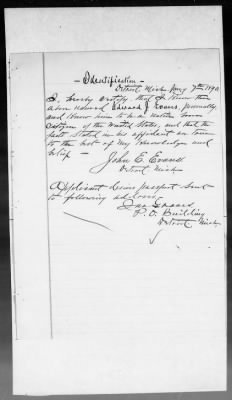 - Identification -
Detroit Mich Aug 7th 1890
I, hereby certify that I know the
above named Edward J. Evans, personally
and know him to be a native born
citizen of the United States, and that the
facts stated in his affidavit are true
to the best of my knowledge and
belief -
John E. Evans
Detroit Mich
Applicant desires passport sent
to following address.
Evans
P. O. Building
Detroit Mich